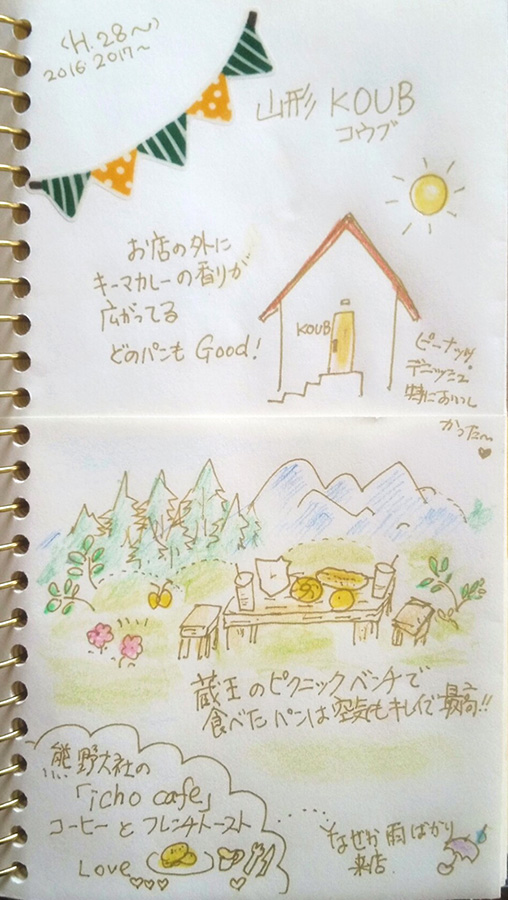 〈H.28〜〉
2016・2017〜
山形 KOUB
コウブ
お店の外に
キーマカレーの香りが
広がってる
どのパンも Good!
KOUB
ピーナッツ
デニッシュ
特においし
かった〜
蔵王のピクニックベンチで
食べたパンは空気もキレイで最高!!
熊野大社の
「icho cafe」
コーヒーとフレンチトースト
Love
なぜか雨ばかり
来店